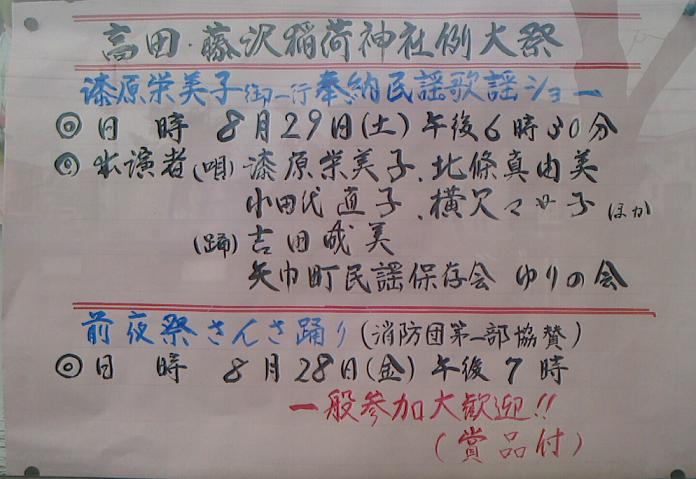 高田・藤沢稲荷神社例大祭
漆原栄美子御一行奉納民謡歌謡ショー
◎日 時 8月29日(土)午後6時30分
◎出演者(唄)漆原栄美子、北條真由美
小田代直子、横 子 ほか
(踊)吉田成美
矢巾町民謡保存会 ゆりの会
前夜祭さんさ踊り(消防団第一部協賛)
◎日 時 8月28日(金)午後7時
一般参加大歓迎!!
(賞品付)